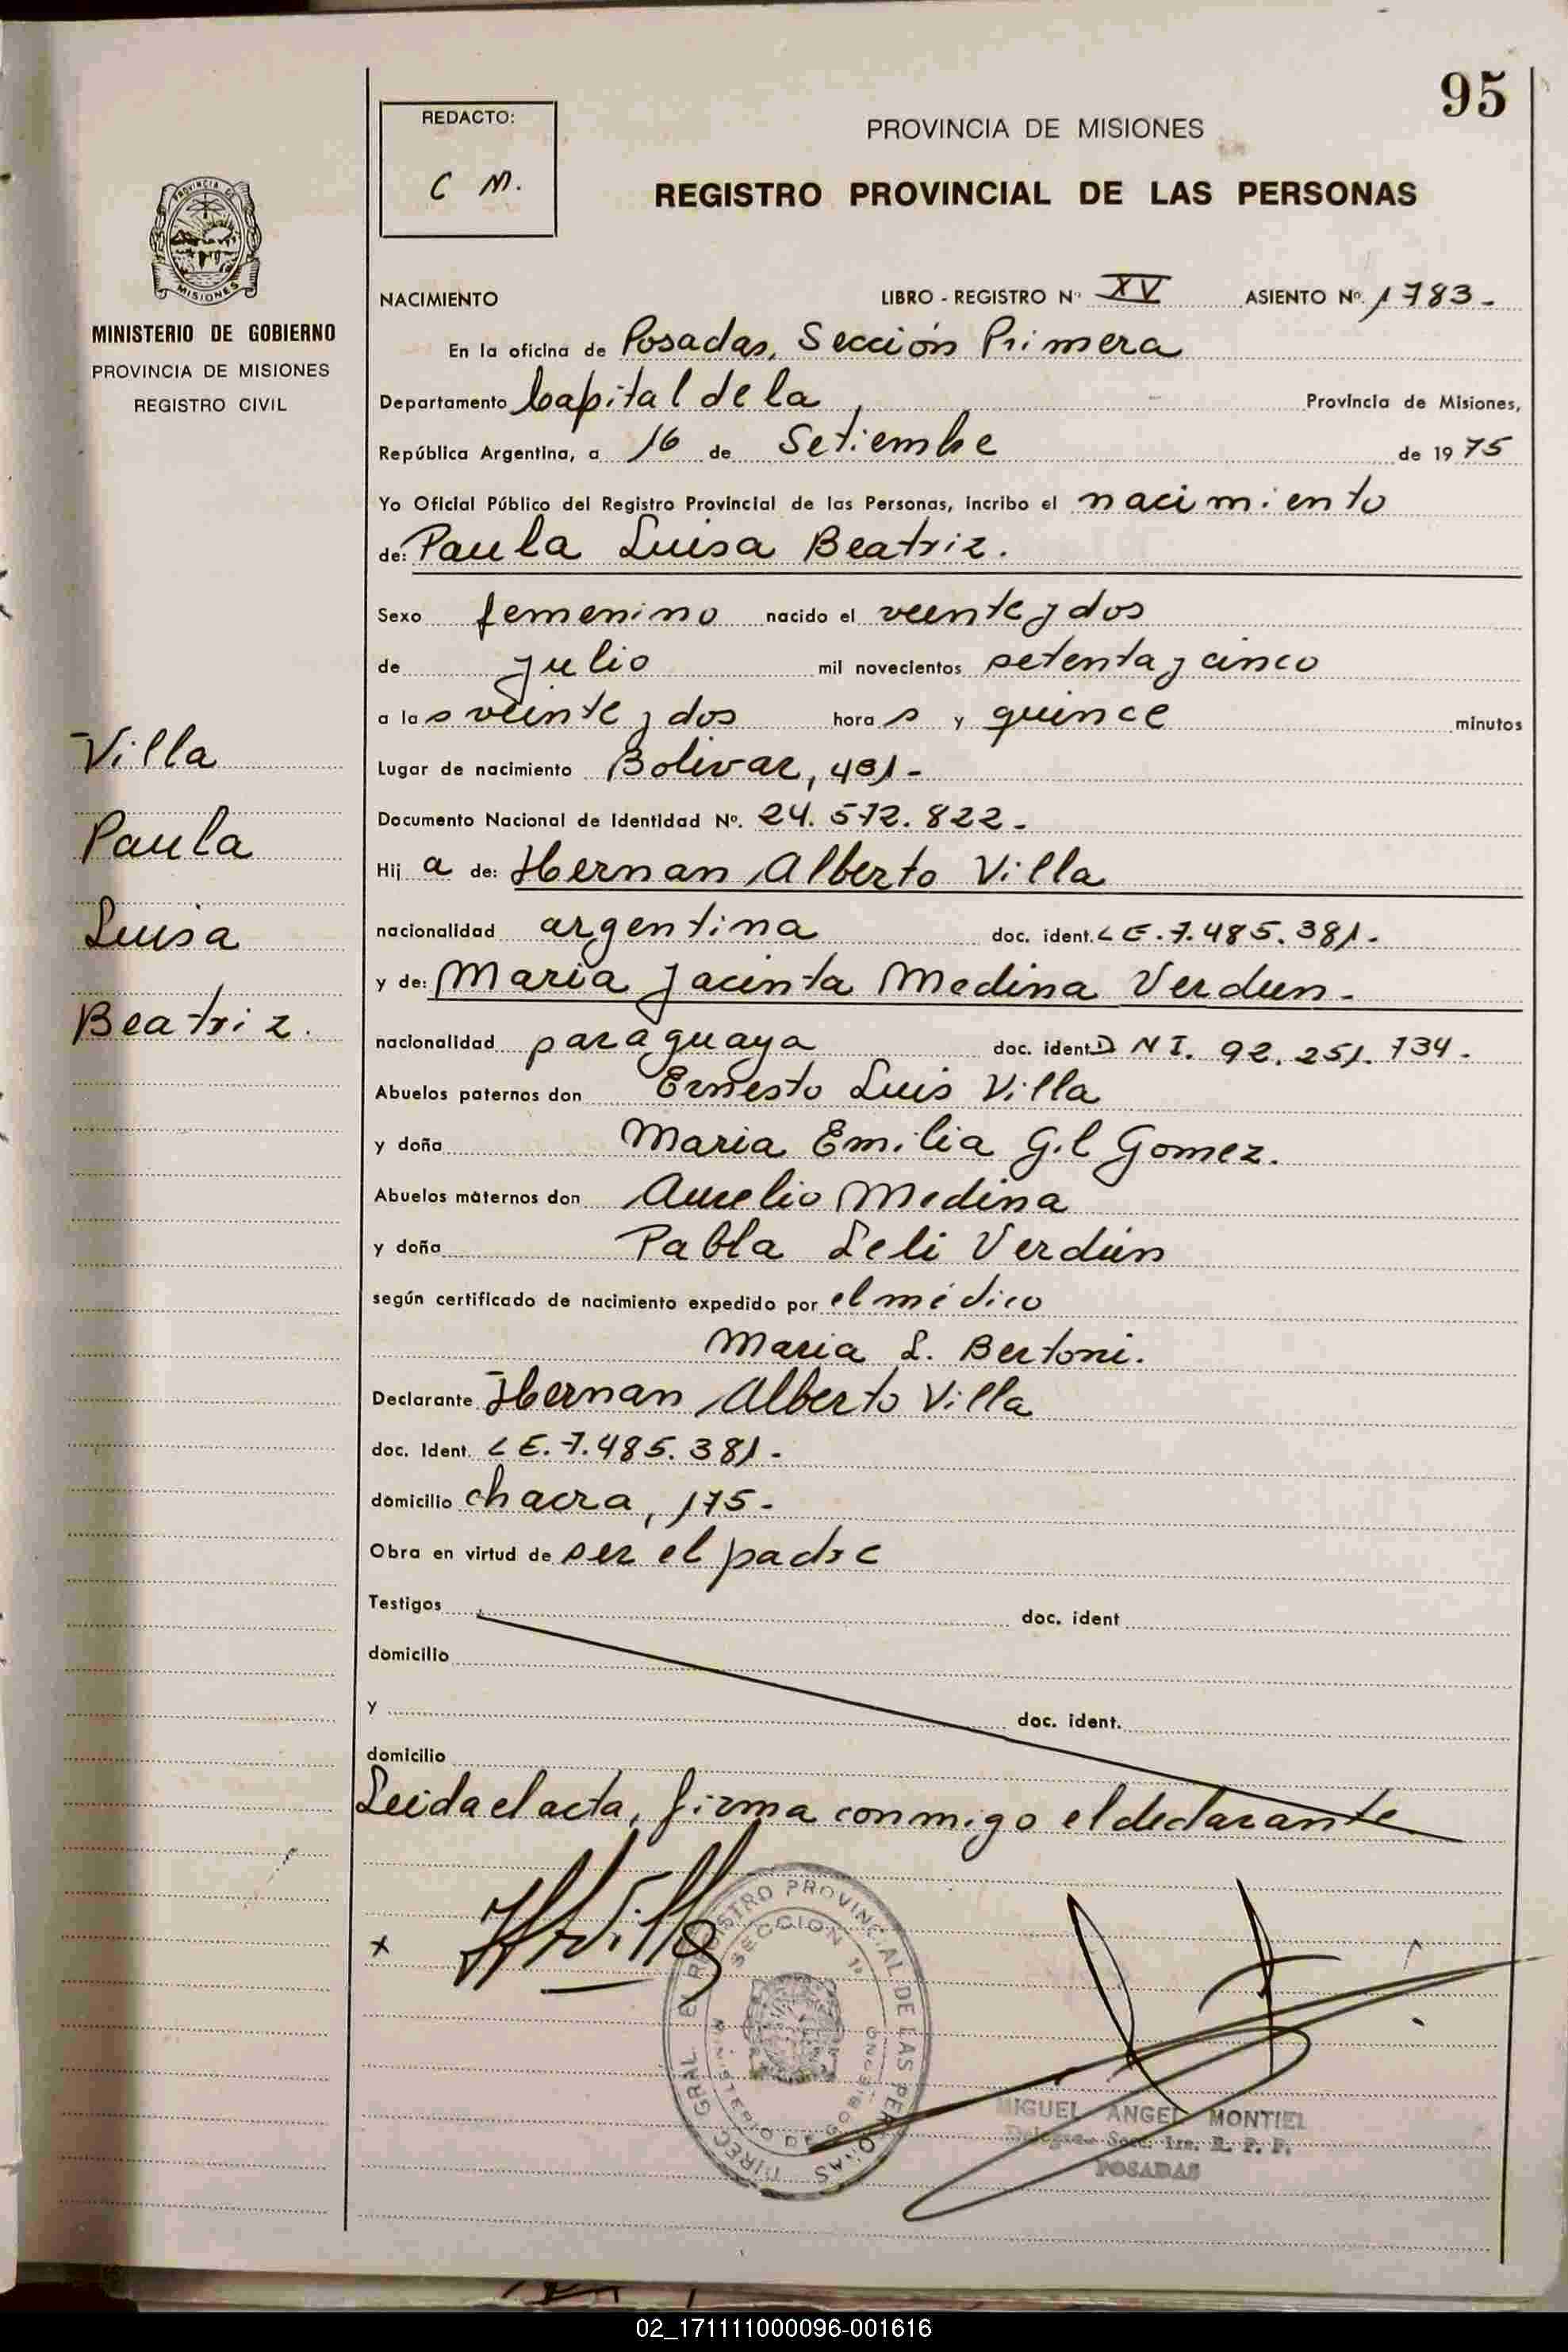 95
REDACTO:
C M.
PROVINCIA DE MISIONES
REGISTRO PROVINCIAL DE LAS PERSONAS
PROVINCIA DE
MISIONES
MINISTERIO DE GOBIERNO
PROVINCIA DE MISIONES
REGISTRO CIVIL
Villa
Paula
Luisa
Beatriz.
NACIMIENTO LIBRO - REGISTRO Nº XV ASIENTO Nº. 1783-
En la oficina de Posadas, Sección Primera
Departamento Capital de la Provincia de Misiones,
República Argentina, a 16 de Setiembre de 1975
Yo Oficial Público del Registro Provincial de las Personas, incribo el nacimiento
de: Paula Luisa Beatriz.
Sexo femenino nacido el veinte y dos
de julio mil novecientos setenta y cinco
a las veinte y dos horas y quince minutos
Lugar de nacimiento Bolivar, 431-
Documento Nacional de Identidad Nº. 24.572.822-
Hija de: Hernan Alberto Villa
nacionalidad argentina doc. ident. LE.7.485.381.-
y de: Maria Jacinta Medina Verdun-
nacionalidad paraguaya doc. ident. DNI. 92.251.734-
Abuelos paternos don Ernesto Luis Villa
y doña Maria Emilia Gil Gomez.
Abuelos maternos don Aurelio Medina
y doña Pabla Leli Verdún
según certificado de nacimiento expedido por el médico
Maria L. Bertoni.
Declarante Hernan Alberto Villa
doc. Ident. LE.7.485.381.-
domicilio chacra, 175-
Obra en virtud de ser el padre
Testigos doc. ident
domicilio
y doc. ident.
domicilio
Leida el acta, firma conmigo el declarante
x HAVilla
DIREC. GRAL. EL REGISTRO PROVINCIAL DE LAS PERSONAS
SECCION 1ª
MINISTERIO DE GOBIERNO
MIGUEL ANGEL MONTIEL
Secc. 1ra. R. P. P.
POSADAS
02_171111000096-001616